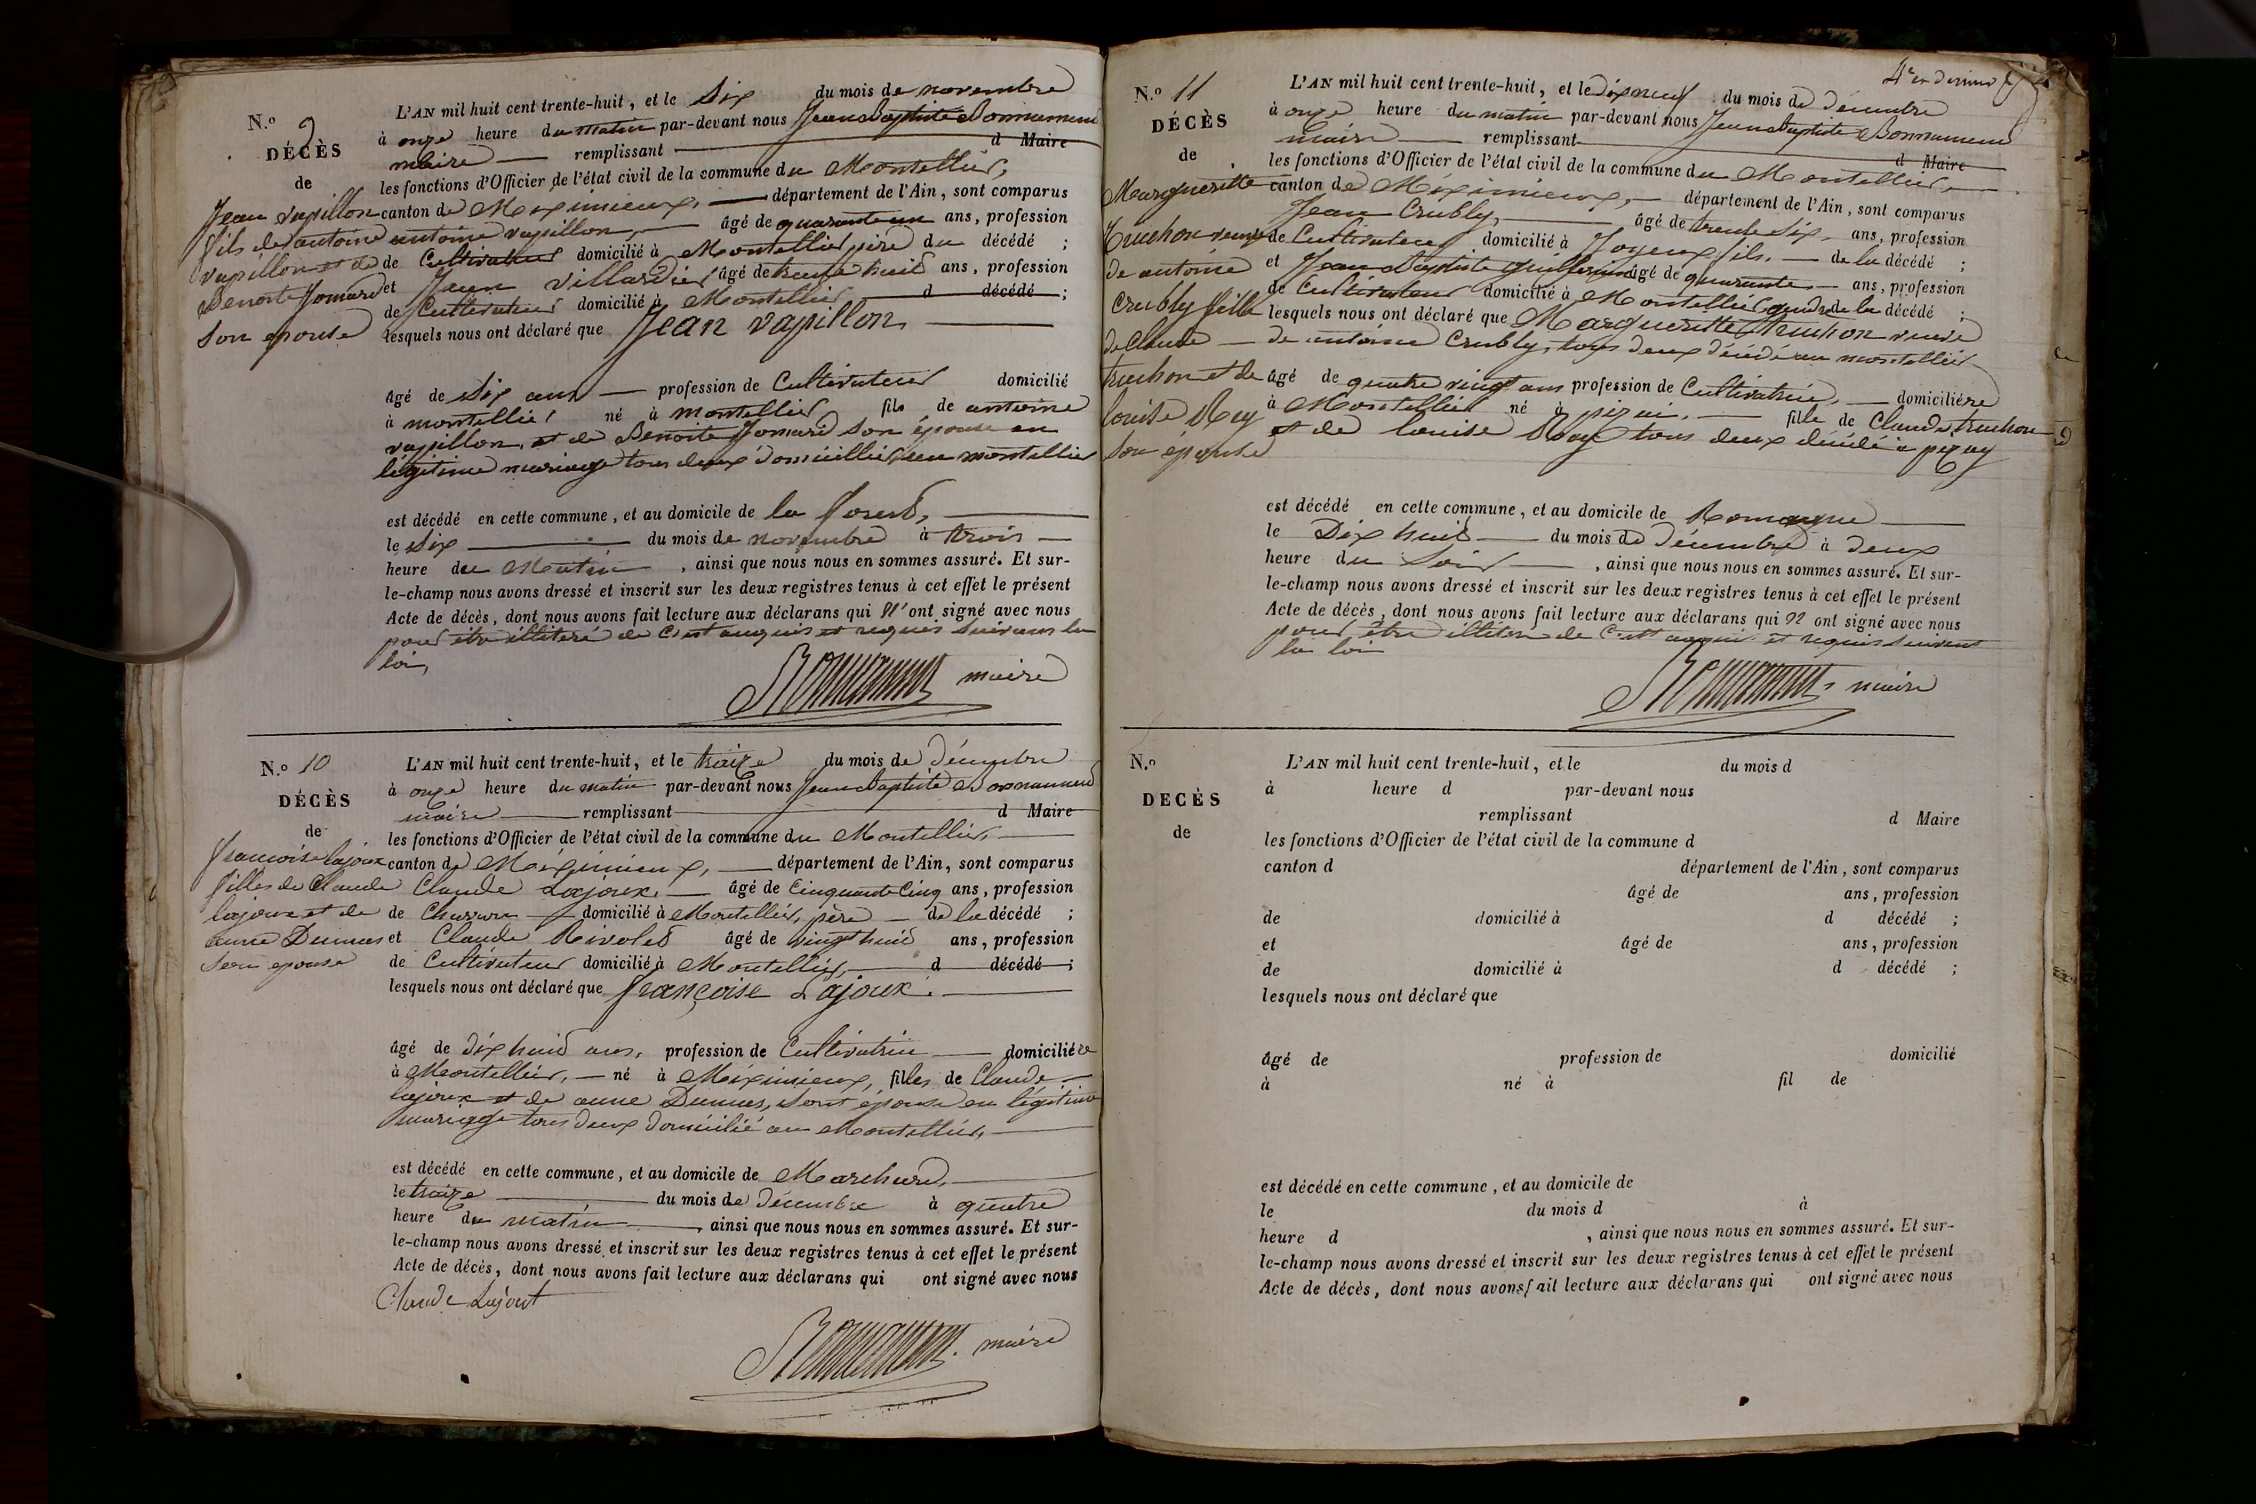 N.o 9
DÉCÈS
de
Jean vapillon
fils de antoine
vapillon et de
Benoite Jomard
son epouse
L'AN mil huit cent trente-huit, et le Six du mois de novembre
à onze heure du matin par-devant nous Jean Baptiste Bonnamend
maire remplissant d Maire
les fonctions d'Officier de l'état civil de la commune du Montellier,
canton de Meximieux, département de l'Ain, sont comparus
antoine vapillon, âgé de quarante un ans, profession
de Cultivateur domicilié à Montellier père du décédé ;
et Jean Villardier âgé de trente huit ans, profession
de Cultivateur domicilié à Montellier d décédé ;
lesquels nous ont déclaré que Jean vapillon
âgé de Six ans profession de Cultivateur domicilié
à montellier né à montellier fils de antoine
vapillon, et de Benoite Jomard son épouse en
légitime mariage tous deux domicillié au montellier
est décédé en cette commune, et au domicile de la forest,
le Six du mois de novembre à trois
heure du Matin, ainsi que nous nous en sommes assuré. Et sur-
le-champ nous avons dressé et inscrit sur les deux registres tenus à cet effet le présent
Acte de décès, dont nous avons fait lecture aux déclarans qui n'ont signé avec nous
pour être illiteré de c'est enquis et requis suivans la
loi,
maire
N.o 10
DÉCÈS
de
francoise lajoux
filles de Claude
lajoux et de
anne Dumas
son epouse
L'AN mil huit cent trente-huit, et le traize du mois de décembre
à onze heure du matin par-devant nous Jean Baptiste Bonnamend
maire remplissant d Maire
les fonctions d'Officier de l'état civil de la commune du Montellier,
canton de Méximieux, département de l'Ain, sont comparus
Claude Lajoux, âgé de Cinquante Cinq ans, profession
de Charron domicilié à Montellier, père de la décédé ;
et Claude Rivolet âgé de vingt huit ans, profession
de Cultivateur domicilié à Montellier, d décédé ;
lesquels nous ont déclaré que françoise Lajoux.
âgé de dix huit ans, profession de Cultivatrice domiciliére
à Montellier, né à Méximieux, filles de Claude
lajoux et de anne Dumas, sont épouse en légitime
mariage tous deux domicilié au Montellier,
est décédé en cette commune, et au domicile de Marchard,
le traize du mois de décembre à quatre
heure du matin, ainsi que nous nous en sommes assuré. Et sur-
le-champ nous avons dressé et inscrit sur les deux registres tenus à cet effet le présent
Acte de décès, dont nous avons fait lecture aux déclarans qui ont signé avec nous
Claude Lajout
maire
4e et dernier
N.o 11
DÉCÈS
de
Marguerite
truchon veuve
de antoine
Crubly fille
de Claude
truchon et de
louise Rey
son épouse
L'AN mil huit cent trente-huit, et le dix neuf du mois de décembre
à onze heure du matin par-devant nous Jean Baptiste Bonnamend
maire remplissant d Maire
les fonctions d'Officier de l'état civil de la commune du Montellier,
canton de Méximieux, département de l'Ain, sont comparus
Jean Crubly, âgé de trente Six ans, profession
de Cultivateur domicilié à Joyeux fils, de la décédé ;
et Jean Baptiste âgé de quarante ans, profession
de Cultivateur domicilié à Montellier gendre de la décédé ;
lesquels nous ont déclaré que Marguerite truchon veuve
de antoine Crubly, tous deux décédé au montellier
âgé de quatre vingt ans profession de Cultivatrice, domiciliére
à Montellier né à pizai, fille de Claude truchon
et de louise Rey tous deux décédé à pizay
est décédé en cette commune, et au domicile de Romagne
le Dix huit du mois de décembre à deux
heure du Soir, ainsi que nous nous en sommes assuré. Et sur-
le-champ nous avons dressé et inscrit sur les deux registres tenus à cet effet le présent
Acte de décès, dont nous avons fait lecture aux déclarans qui n ont signé avec nous
pour être illiteré de c'est enquis et requis suivent
la loi
maire
N.o
DÉCÈS
de
L'AN mil huit cent trente-huit, et le du mois d
à heure d par-devant nous
remplissant d Maire
les fonctions d'Officier de l'état civil de la commune d
canton d département de l'Ain, sont comparus
âgé de ans, profession
de domicilié à d décédé ;
et âgé de ans, profession
de domicilié à d décédé ;
lesquels nous ont déclaré que
âgé de profession de domicilié
à né à fil de
est décédé en cette commune, et au domicile de
le du mois d à
heure d , ainsi que nous nous en sommes assuré. Et sur-
le-champ nous avons dressé et inscrit sur les deux registres tenus à cet effet le présent
Acte de décès, dont nous avons fait lecture aux déclarans qui ont signé avec nous